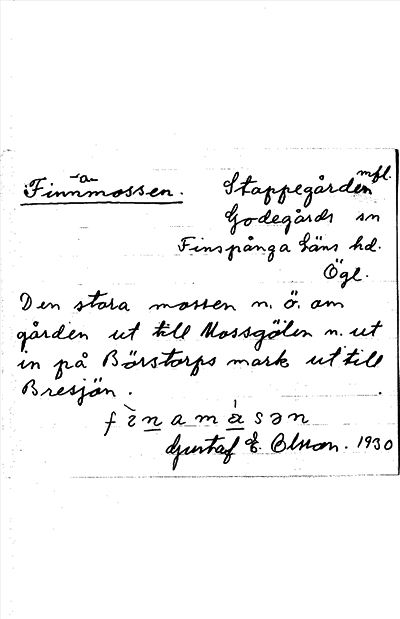 Finnamossen. Stappegården mfl.
Godegårds sn
Finspånga läns hd.
Ögl.
Den stora mossen n. ö. om
gården ut till Mossgölen n. ut
in på Börstorps mark ut till
Bresjön.
Gustaf E. Olsson. 1930